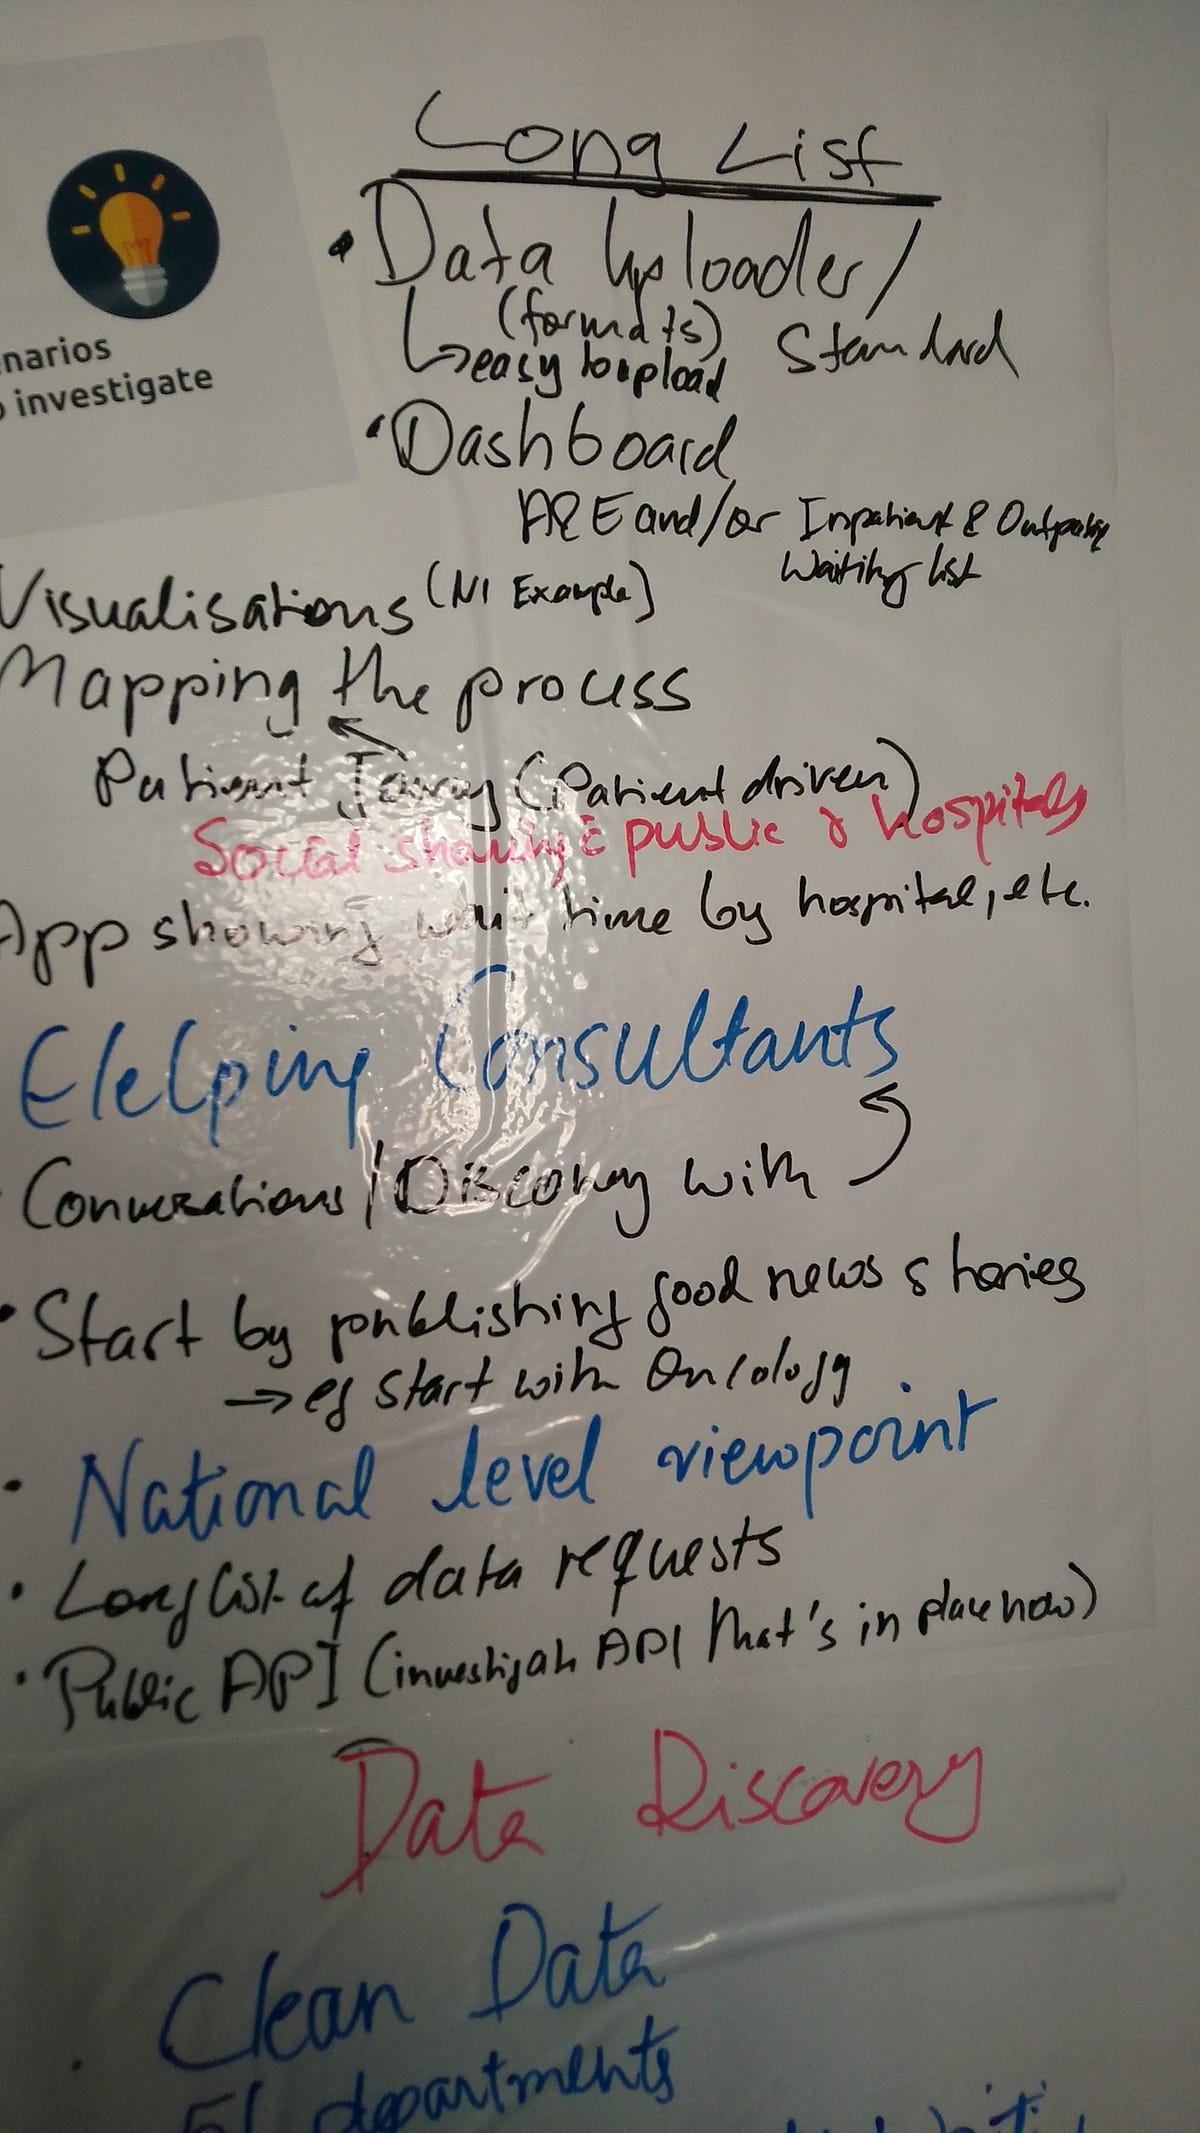 Long List
narios
investigate
• Data Uploader/
(formats) Standard
↳ easy to upload
• Dashboard
A&E and/or Inpatient & Outpatie
Waiting list
Visualisations (NI Example)
Mapping the process
Patient (Patient driven)
Social sharing public & hospitals
App showing wait time by hospital, etc.
Helping Consultants
Conversations/Discovery with
• Start by publishing good news stories
→ eg start with Oncology
• National level viewpoint
• Long list of data requests
• Public API (investigate API that's in place now)
Data Discovery
• Clean Data
departments